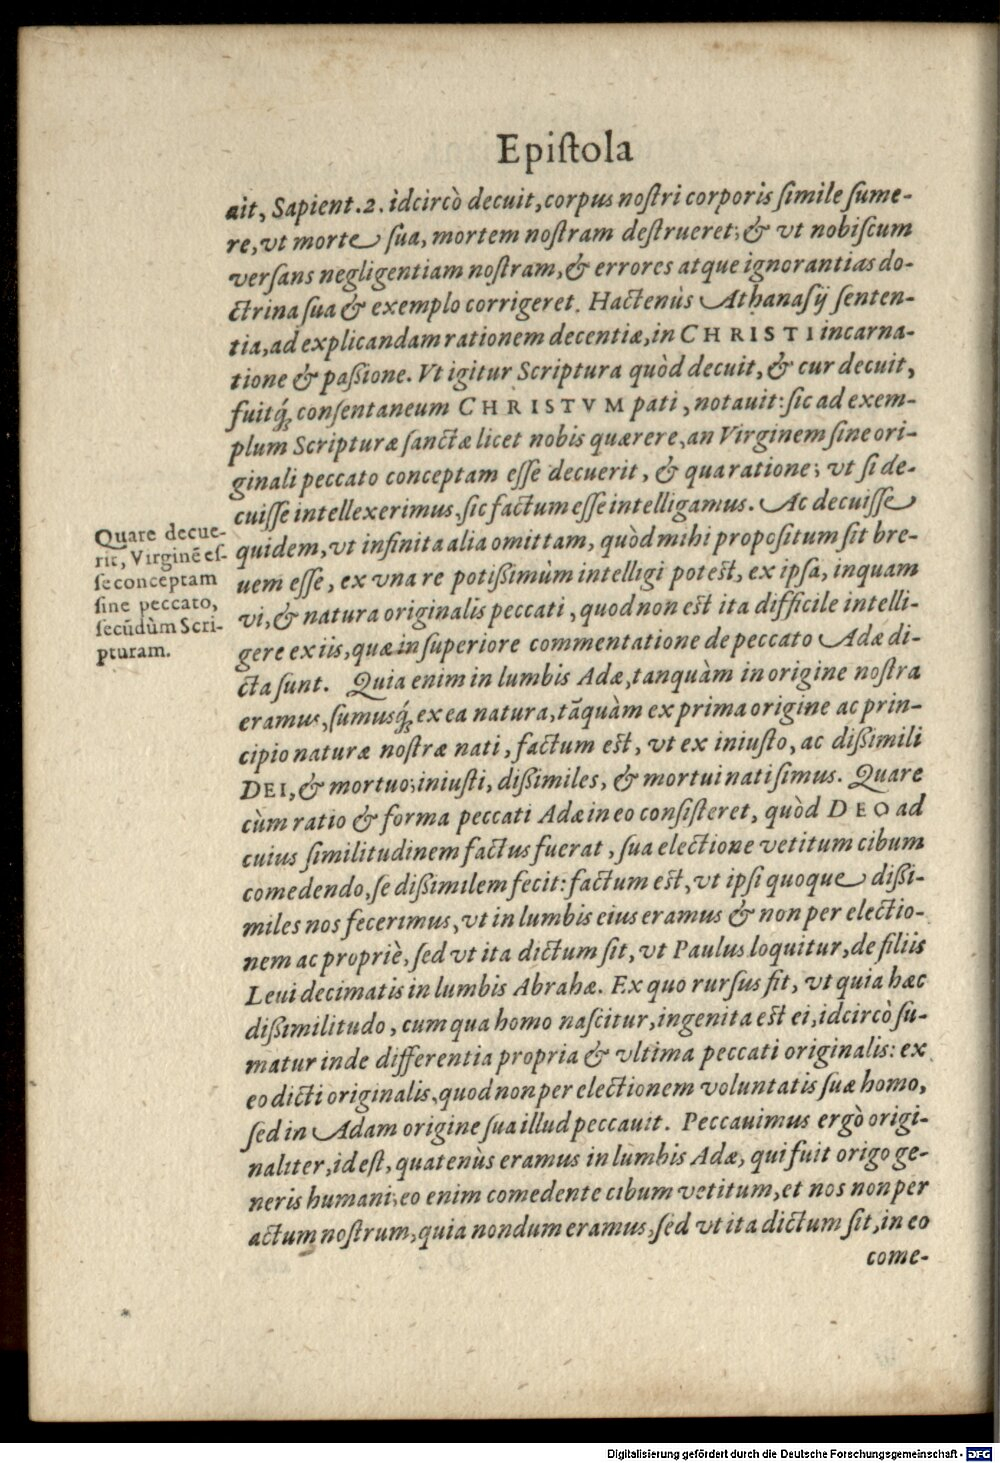 Epiſtola
ait, Sapient.2. idcircò decuit, corpus noſtri corporis ſimile ſume-
re, vt morte ſua, mortem noſtram deſtrueret; & vt nobiſcum
verſans negligentiam noſtram, & errores atque ignorantias do-
ctrina ſua & exemplo corrigeret. Hactenùs Athanaſij ſenten-
tia, ad explicandam rationem decentiæ, in CHRISTI incarna-
tione & paßione. Vt igitur Scriptura quòd decuit, & cur decuit,
fuitq́; conſentaneum CHRISTVM pati, notauit: ſic ad exem-
plum Scripturæ ſanctæ licet nobis quærere, an Virginem ſine ori-
ginali peccato conceptam eſſe decuerit, & qua ratione; vt ſi de-
cuiſſe intellexerimus, ſic factum eſſe intelligamus. Ac decuiſſe
quidem, vt infinita alia omittam, quòd mihi propoſitum ſit bre-
uem eſſe, ex vna re potißimùm intelligi poteſt, ex ipſa, inquam
vi, & natura originalis peccati, quod non eſt ita difficile intelli-
gere ex iis, quæ in ſuperiore commentatione de peccato Adæ di-
cta ſunt. Quia enim in lumbis Adæ, tanquàm in origine noſtra
eramus, ſumusq́; ex ea natura, tãquàm ex prima origine ac prin-
cipio naturæ noſtræ nati, factum eſt, vt ex iniuſto, ac dißimili
DEI, & mortuo; iniuſti, dißimiles, & mortui nati ſimus. Quare
cùm ratio & forma peccati Adæ in eo conſiſteret, quòd DEO ad
cuius ſimilitudinem factus fuerat, ſua electione vetitum cibum
comedendo, ſe dißimilem fecit: factum eſt, vt ipſi quoque dißi-
miles nos fecerimus, vt in lumbis eius eramus & non per electio-
nem ac propriè, ſed vt ita dictum ſit, vt Paulus loquitur, de filiis
Leui decimatis in lumbis Abrahæ. Ex quo rurſus fit, vt quia hæc
dißimilitudo, cum qua homo naſcitur, ingenita eſt ei, idcircò ſu-
matur inde differentia propria & vltima peccati originalis: ex
eo dicti originalis, quod non per electionem voluntatis ſuæ homo,
ſed in Adam origine ſua illud peccauit. Peccauimus ergò origi-
naliter, id eſt, quatenùs eramus in lumbis Adæ, qui fuit origo ge-
neris humani; eo enim comedente cibum vetitum, et nos non per
actum noſtrum, quia nondum eramus, ſed vt ita dictum ſit, in eo
come-
Quare decue-
rit, Virginẽ eſ-
ſe conceptam
ſine peccato,
ſecũdùm Scri-
pturam.
Digitalisierung gefördert durch die Deutsche Forschungsgemeinschaft - DFG